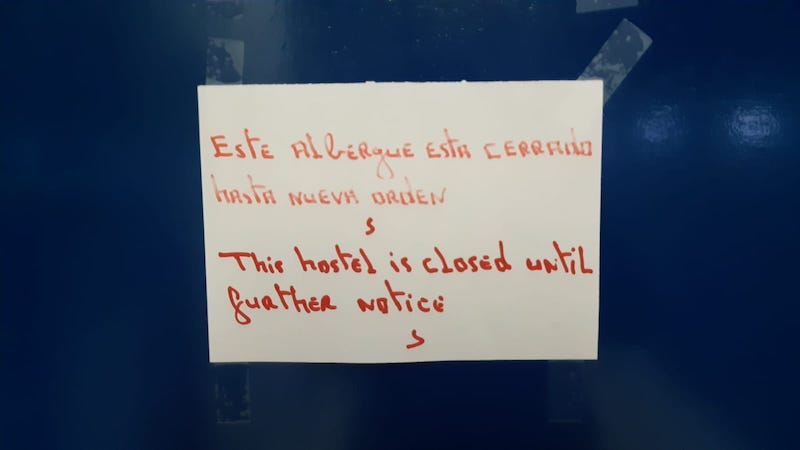 Este albergue esta cerrado
hasta nueva orden
s
This hostel is closed until
further notice
s